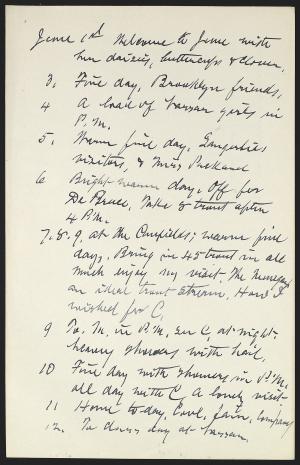 June 1st Welcome to June with
her daisies, buttercups & clover.
3, Fine day, Brooklyn friends,
4 A load of Vassar girls in
P.M.
5, Warm fine day, Saugerties
visitors, & Miss
6 Bright warm day. Off for
De Bruce, take 8 trout after
4 P.M.
7, 8, 9, at the ; warm fine
days. Bring in 45 trout in all
much enjoy my visit. The
an ideal trout stream. How I
wished for C.
9 To M. in P.M. C. at night-
heavy showers with hail.
10 Fine day with showers in P.M.
all day with C. A lovely visit
11 Home to day, Cool, fair, company
12, To class day at Vassar.